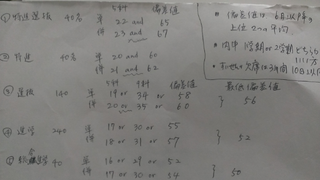 5科 偏差値
① 特進選抜 40名 単 22 and 65
併 23 and 67
② 特進 40名 単 20 and 60
併 21 and 62
5科 9科 偏差値 最低偏差値
③ 選抜 140 単 19 or 34 or 58
併 20 or 35 or 60 } 56
④ 進学 240 単 17 or 30 or 55
併 18 or 31 or 57 } 52
⑤ 40 単 16 or 29 or 52
併 17 or 30 or 54 } 50
• 偏差値は 6月以降の
上位2つの平均
• 内申 1学期or2学期どちら
• 欠席は3年間10日以内